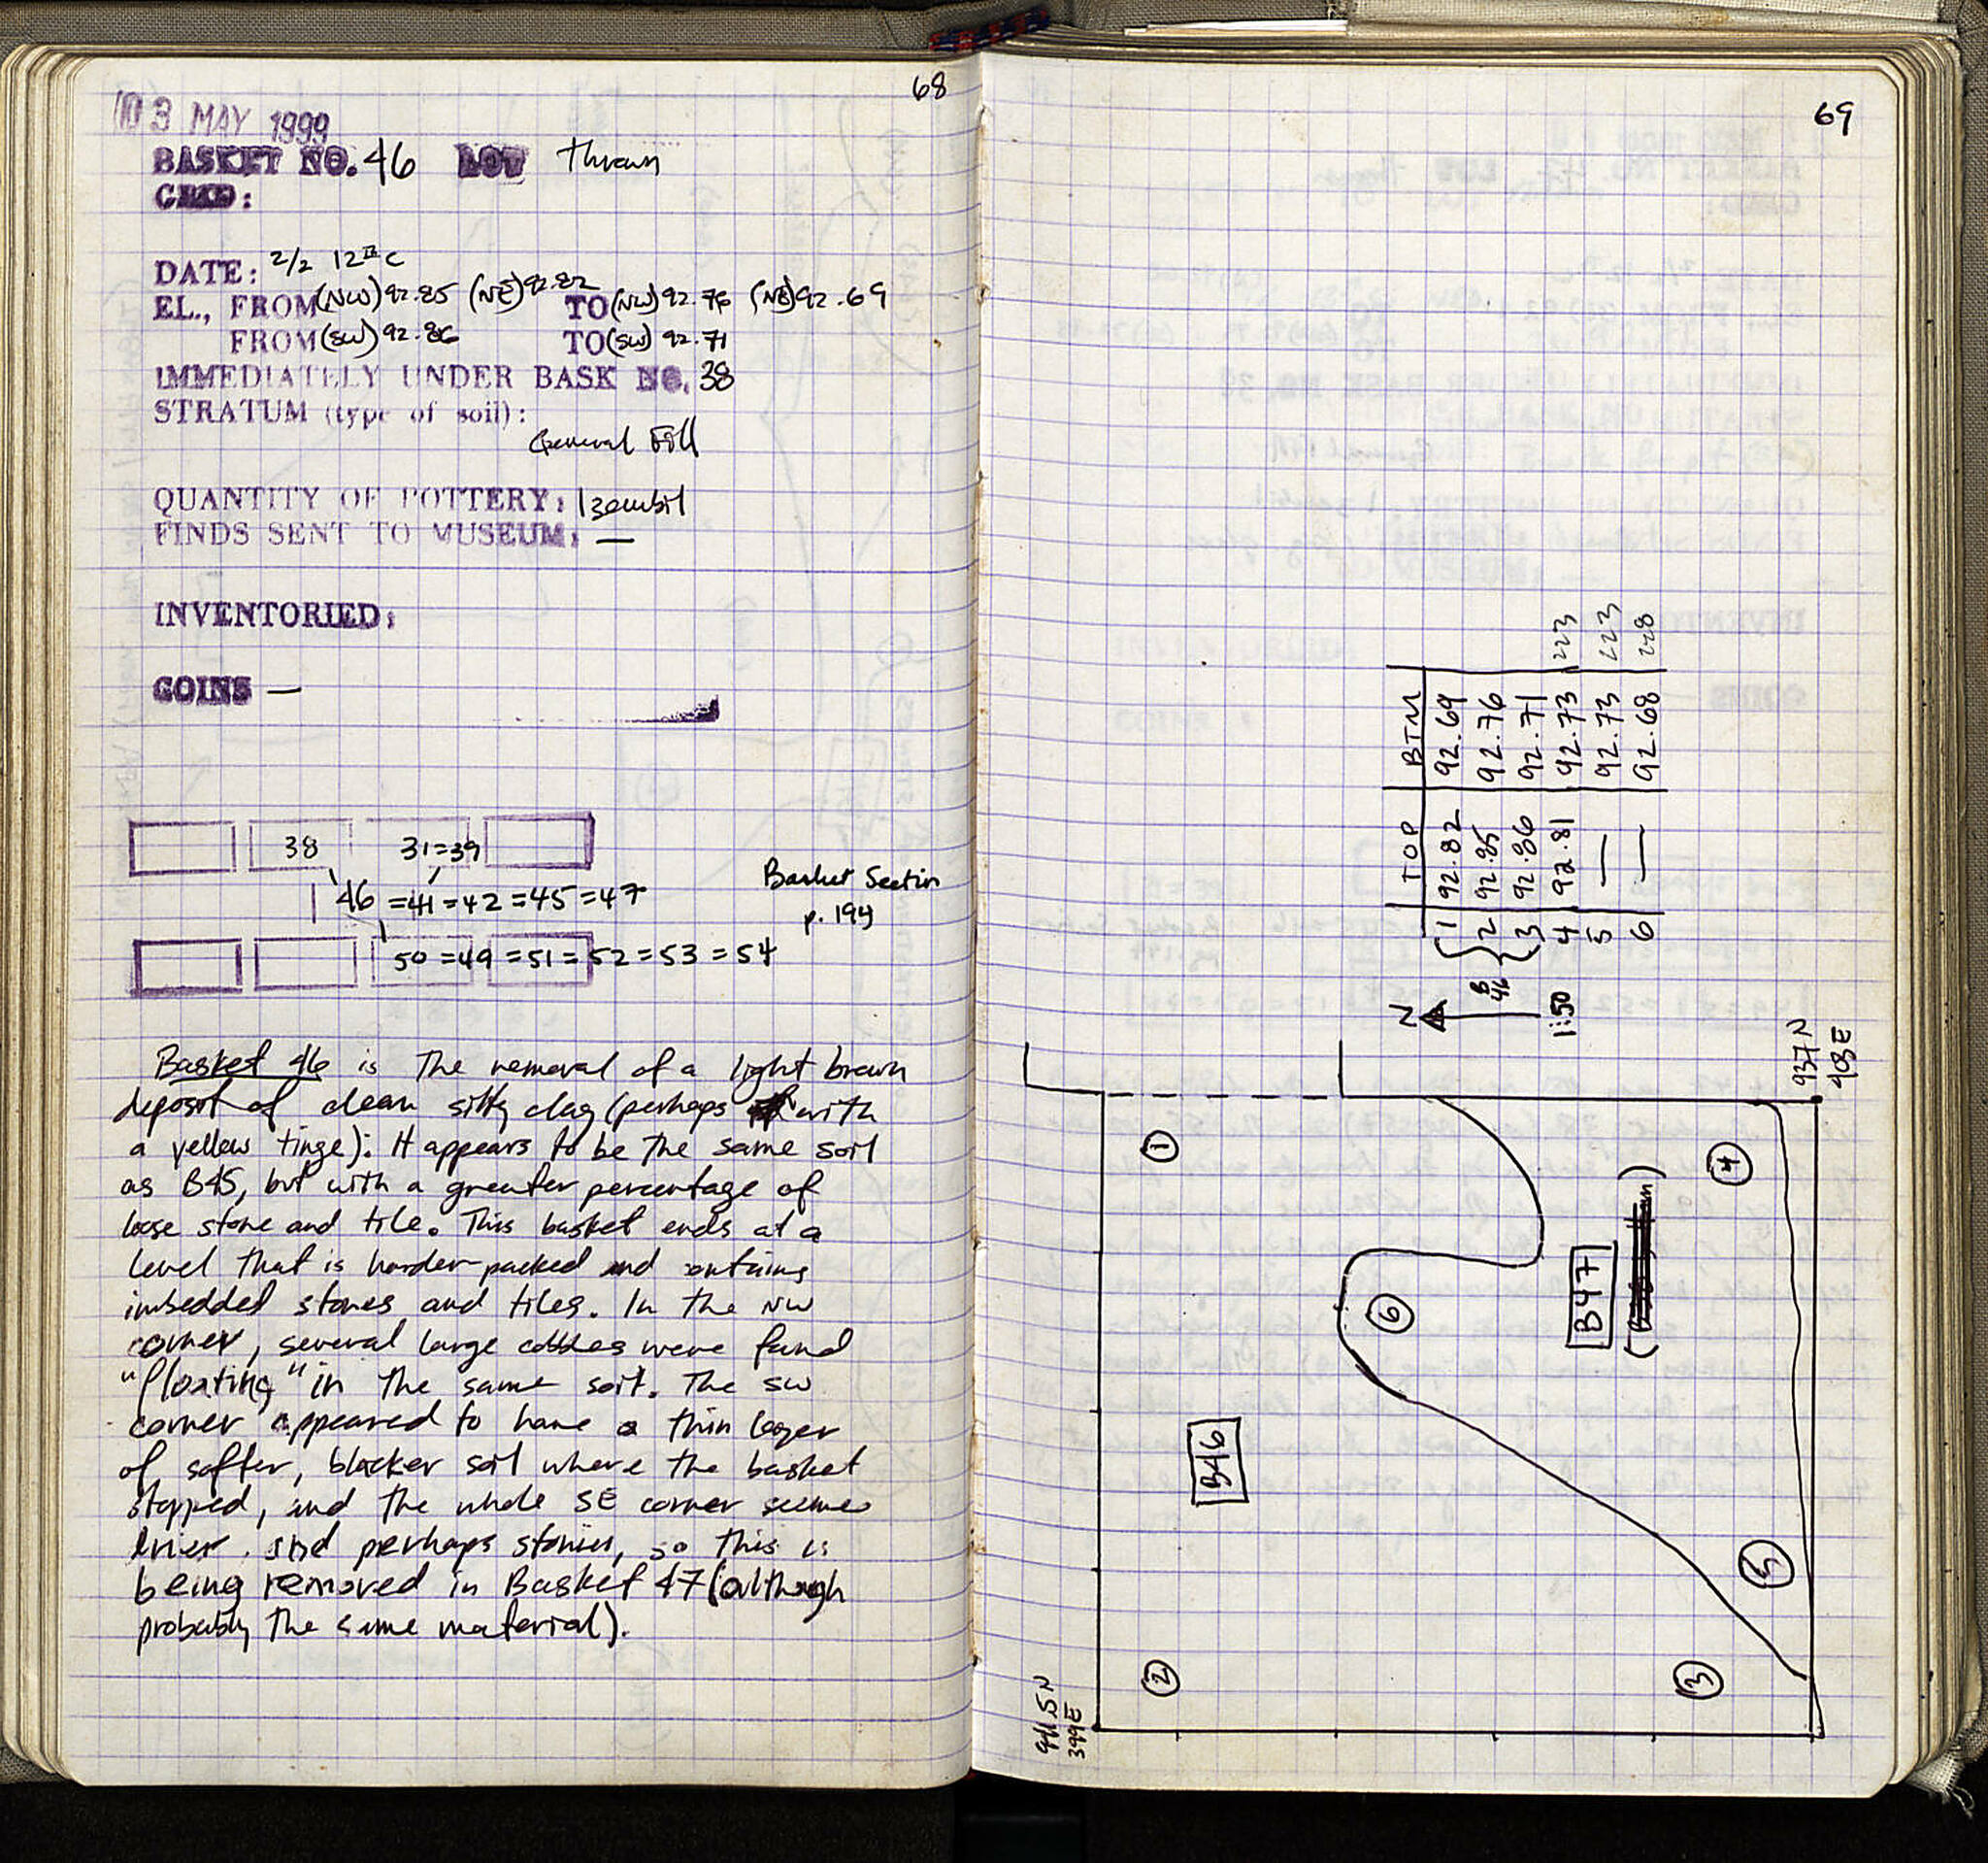 68
03 MAY 1999
BASKET NO. 46 LOT Thrown
GRID:
DATE: 2/2 12th C
EL., FROM (NW) 92.85 (NE) 92.82 TO (NW) 92.76 (NE) 92.69
FROM (SW) 92.86 TO (SW) 92.71
IMMEDIATELY UNDER BASK NO. 38
STRATUM (type of soil):
General Fill
QUANTITY OF POTTERY: 1 zembil
FINDS SENT TO MUSEUM: —
INVENTORIED:
COINS —
38 31=39
46 =41=42=45=47
Basket Section
p. 194
50=49=51=52=53=54
Basket 46 is the removal of a light brown
deposit of clean silty clay (perhaps with
a yellow tinge). It appears to be the same soil
as B45, but with a greater percentage of
loose stone and tile. This basket ends at a
level that is harder-packed and contains
imbedded stones and tiles. In the NW
corner, several large cobbles were found
"floating" in the same soil. The SW
corner appeared to have a thin layer
of softer, blacker soil where the basket
stopped, and the whole SE corner seemed
and perhaps stonier, so this is
being removed in Basket 47 (although
probably the same material).
69
TOP BTM
1 92.82 92.69
2 92.85 92.76
3 92.86 92.71
4 92.81 92.73 223
5 — 92.73 223
6 — 92.68 228
B
46
N
1:50
937 N
403 E
1
4
6
B47
B46
5
2
3
941.5 N
399 E